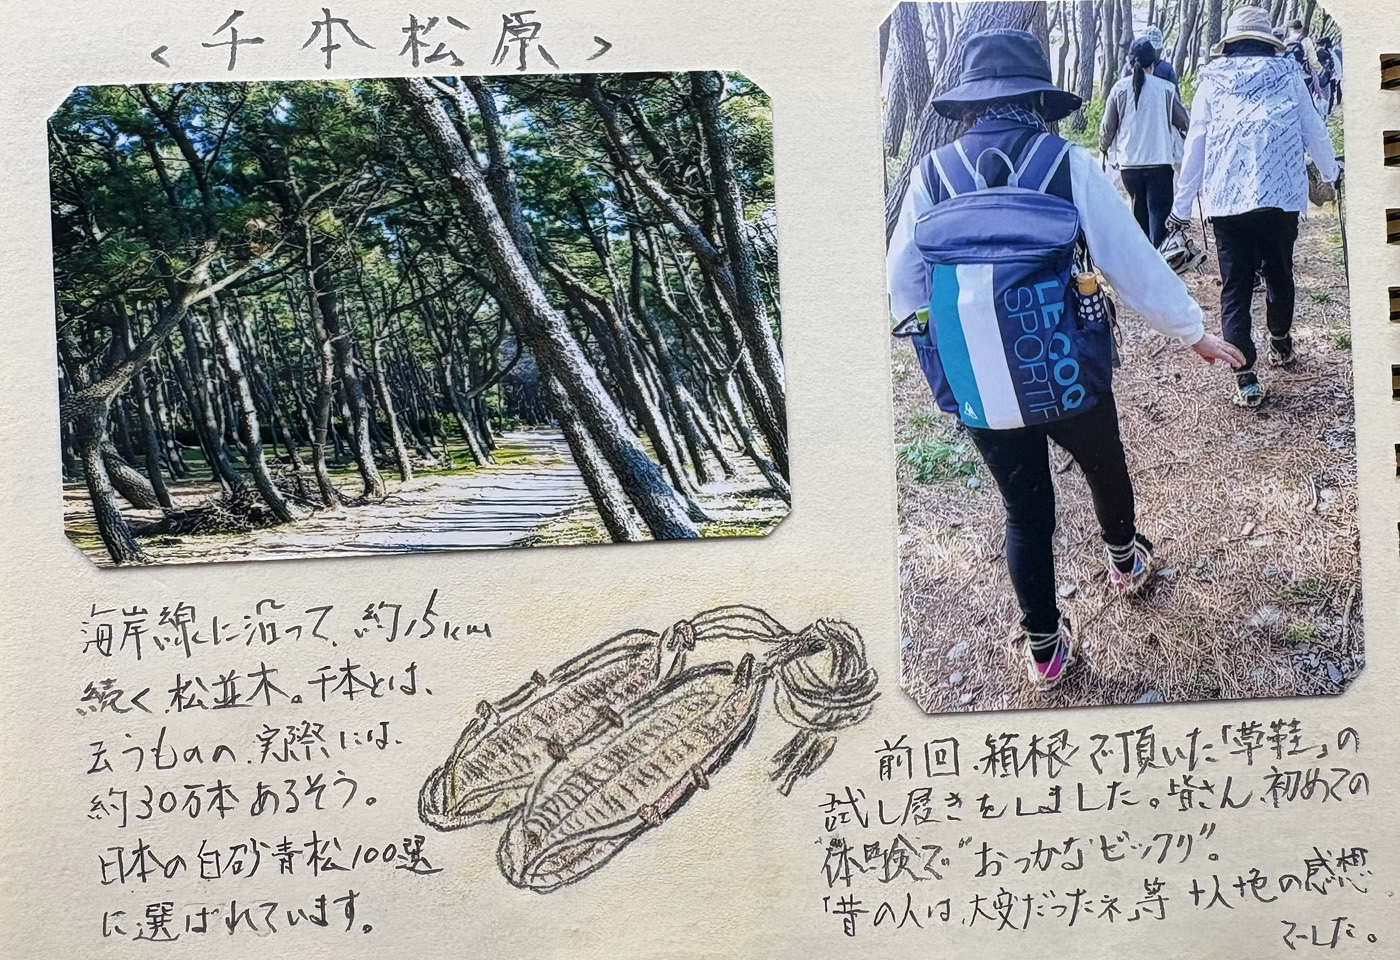 〈千本松原〉
海岸線に沿って、約15km
続く松並木。千本とは、
云うものの、実際には、
約30万本あるそう。
日本の白砂青松100選
に選ばれています。
LE COQ
SPORTIF
前回、箱根で頂いた「草鞋」の
試し履きをしました。皆さん、初めての
体験で“おっかなビックリ”。
「昔の人は、大変だったネ」等 十人十色の感想
でした。